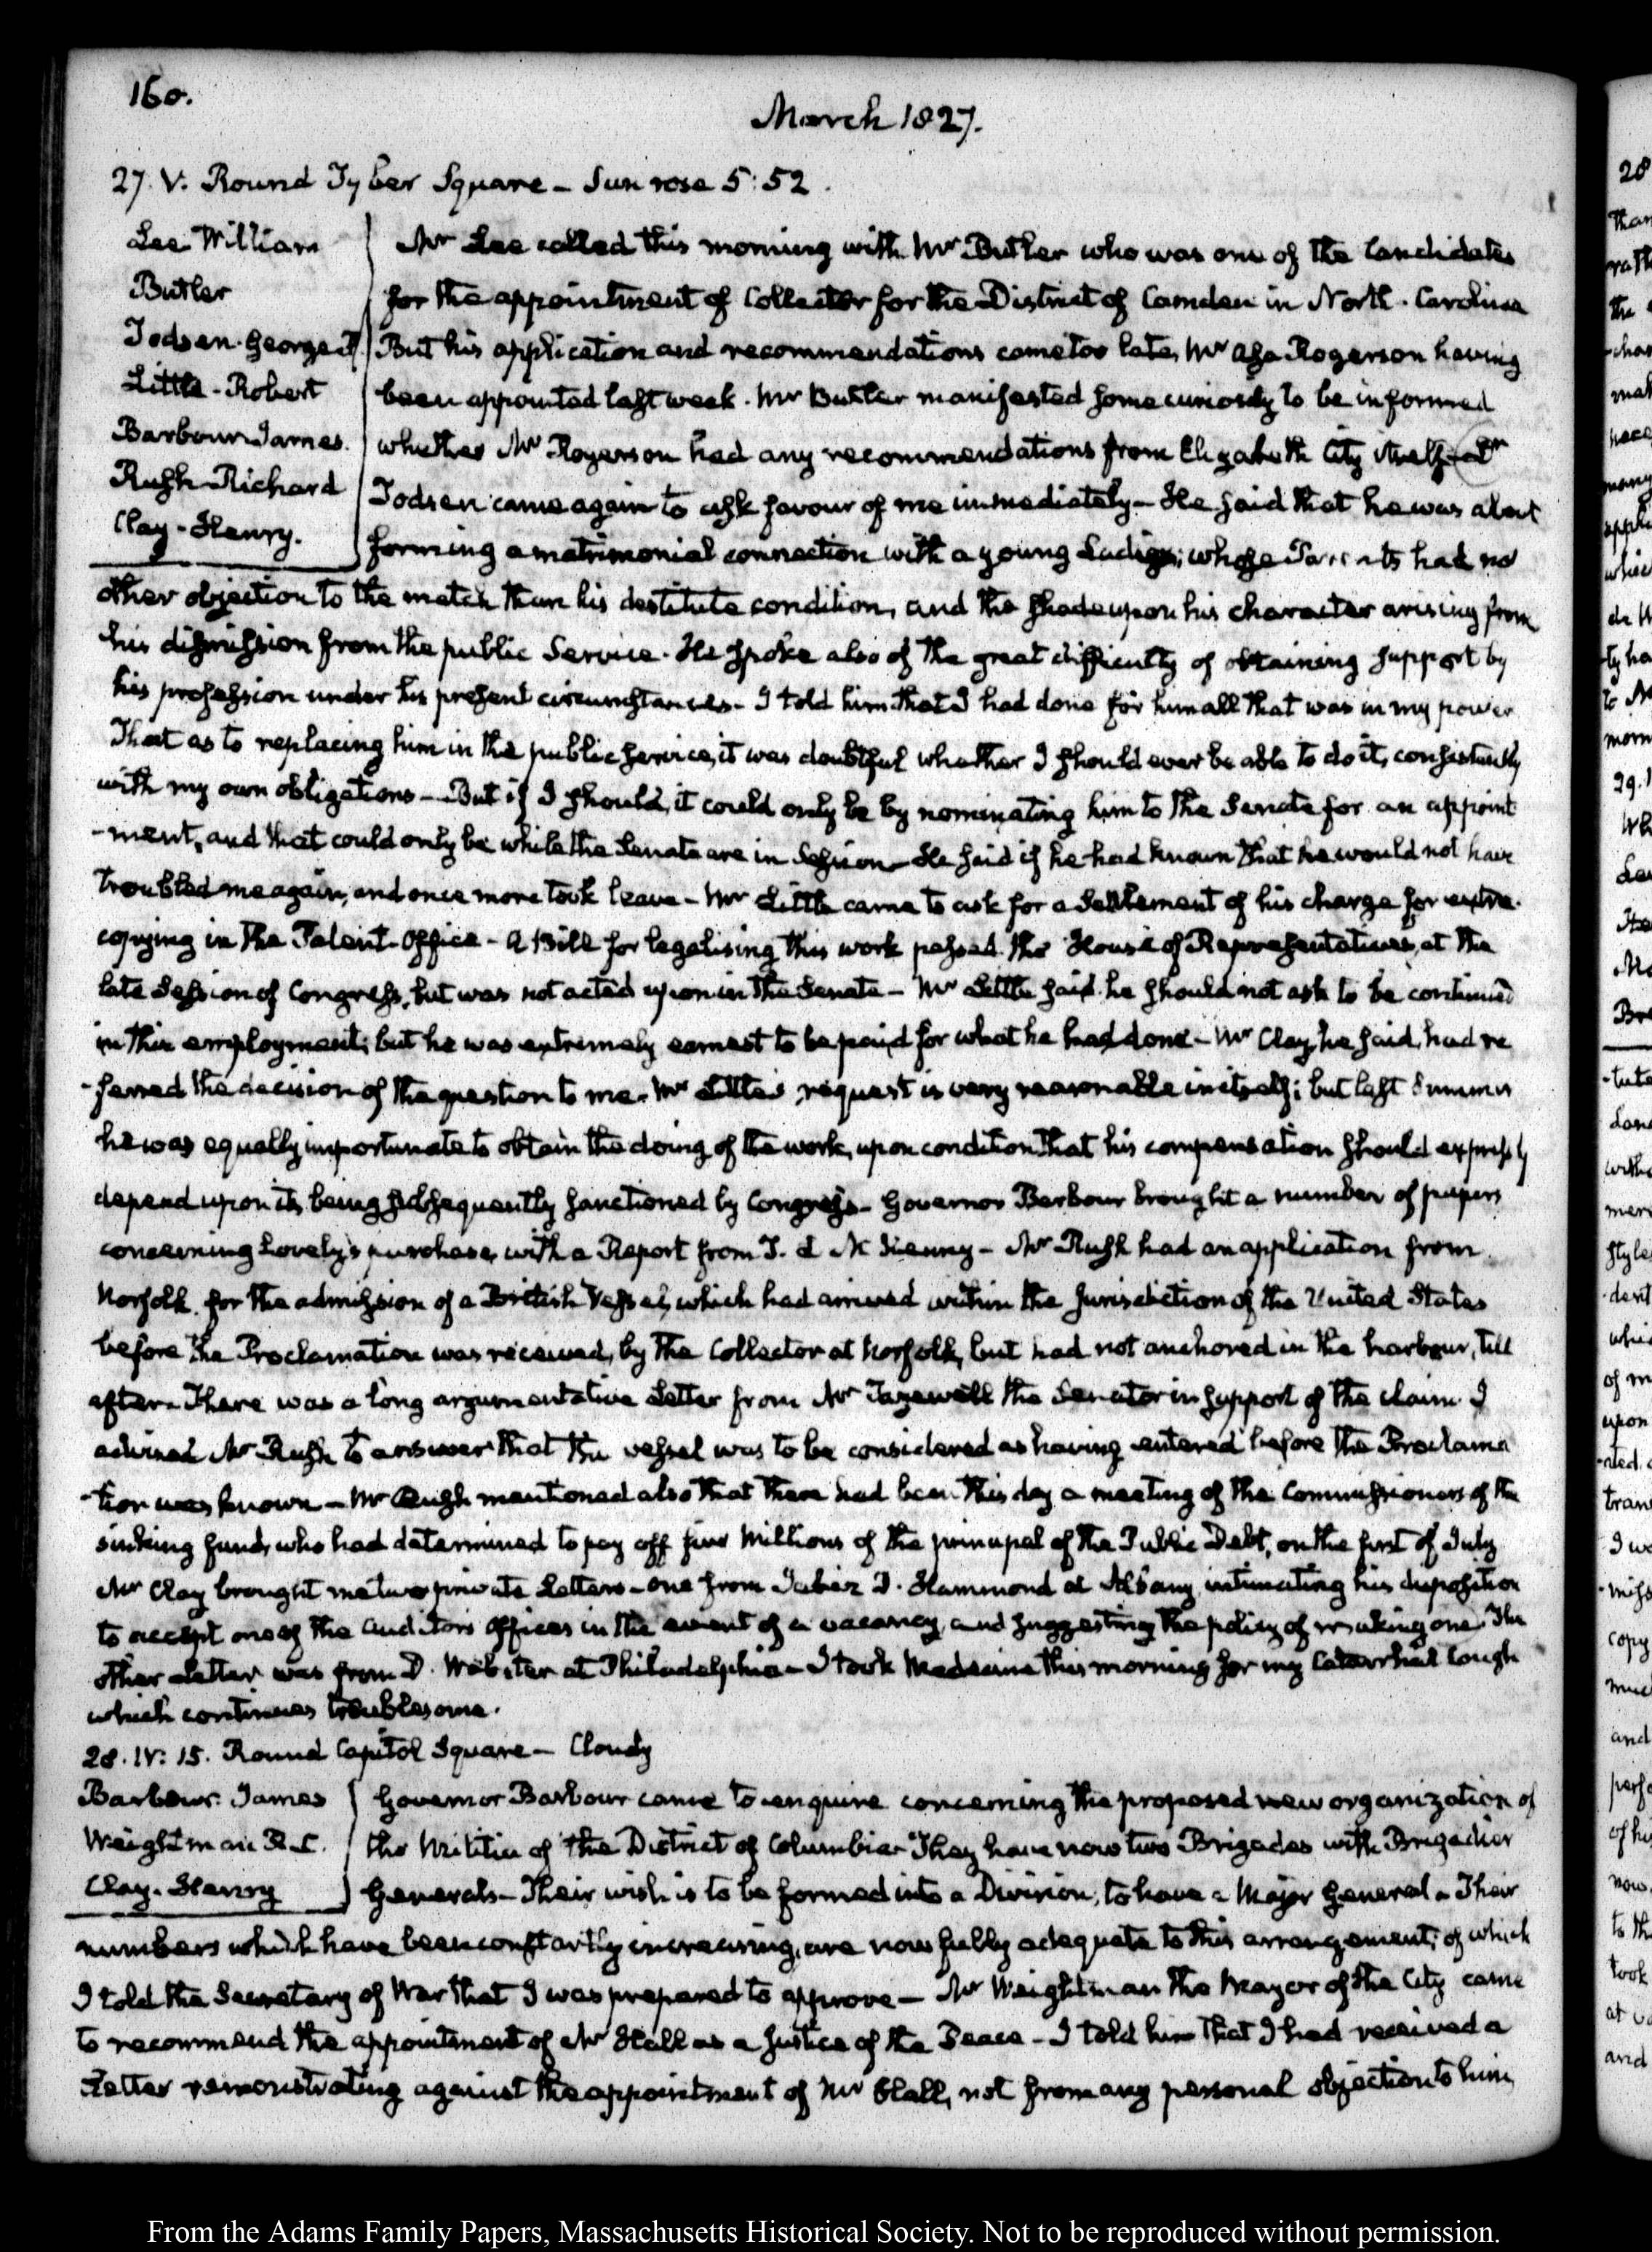 160.
March 1827.
27. V. Round Tyber Square – Sun rose 5:52.
Lee William
Butler
Todsen. George P.
Little - Robert
Barbour James.
Rush Richard
Clay - Henry.
Mr Lee called this morning with Mr Butler who was one of the Candidates
for the appointment of Collector for the District of Camden in North-Carolina
But his application and recommendations came too late, Mr Asa Rogerson having
been appointed last week. Mr Butler manifested some curiosity to be informed
whether Mr Rogerson had any recommendations from Elizabeth City itself – Dr
Todsen came again to ask favour of me immediately – He said that he was about
forming a matrimonial connection with a young Lady; whose Parents had no
other objection to the match than his destitute condition, and the shade upon his character arising from
his dismission from the public Service. He spoke also of the great difficulty of obtaining support by
his profession under his present circumstances – I told him that I had done for him all that was in my power
That as to replacing him in the public service, it was doubtful whether I should ever be able to do it, consistently
with my own obligations – But if I should, it could only be by nominating him to the Senate for an appoint
-ment, and that could only be while the Senate are in Session – He said if he had known that he would not have
troubled me again, and once more took leave – Mr Little came to ask for a Settlement of his charge for extra-
copying in the Patent Office – A Bill for legalising this work passed the House of Representatives, at the
late Session of Congress, but was not acted upon in the Senate – Mr Little said he should not ask to be continued
in this employment; but he was extremely earnest to be paid for what he had done – Mr Clay, he said, had re
-ferred the decision of the question to me. Mr Little's request is very reasonable in itself; but last Summer
he was equally importunate to obtain the doing of the work, upon condition that his compensation should expressly
depend upon its being subsequently sanctioned by Congress – Governor Barbour brought a number of papers
concerning Lovely's purchase, with a Report from T. L. McKenney – Mr Rush had an application from
Norfolk for the admission of a British Vessel, which had arrived within the Jurisdiction of the United States
before the Proclamation was received, by the Collector at Norfolk, but had not anchored in the harbour, till
after – There was a long argumentative Letter from Mr Tazewell the Senator in support of the claim. I
advised Mr Rush to answer that the vessel was to be considered as having entered before the Proclama
-tion was known – Mr Rush mentioned also that there had been this day a meeting of the Commissioners of the
sinking fund, who had determined to pay off five Millions of the principal of the Public Debt, on the first of July
Mr Clay brought me two private Letters – one from Jabez D. Hammond at Albany, intimating his disposition
to accept one of the Auditors Offices in the event of a vacancy, and suggesting the policy of making one. The
other Letter was from D. Webster at Philadelphia – I took Medicine this morning for my Catarrhal Cough
which continues troublesome.
28. IV: 15. Round Capitol Square – Cloudy
Barbour. James
Weightman R. C.
Clay. Henry
Governor Barbour came to enquire concerning the proposed new organization of
the Militia of the District of Columbia – They have now two Brigades with Brigadier
Generals – Their wish is to be formed into a Division, to have a Major General – Their
numbers which have been constantly increasing, are now fully adequate to this arrangement; of which
I told the Secretary of War that I was prepared to approve – Mr Weightman the Mayor of the City came
to recommend the appointment of Mr Hall as a Justice of the Peace – I told him that I had received a
Letter remonstrating against the appointment of Mr Hall, not from any personal objection to him,
From the Adams Family Papers, Massachusetts Historical Society. Not to be reproduced without permission.